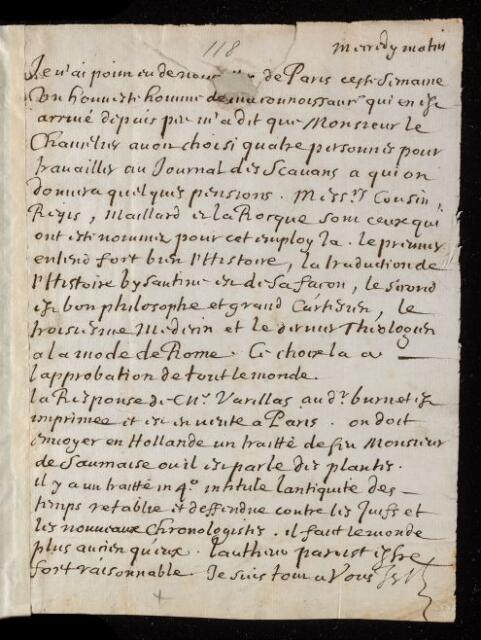 118
mercredy matin
Je n'ai point eu de nouvelles de Paris ceste semaine
Un honneste homme de ma connoissance qui en est
arrivé depuis peu m'a dit que Monsieur le
Chancelier avoit choisi quatre personnes pour
travailler au Journal des Scavans a qui on
donnera quelques pensions. Mess.rs Cousin,
Regis, Maillard et la Rocque sont ceux qui
ont esté nommez pour cet employ la. le premier
entend fort bien l'Histoire, la traduction de
l'Histoire bysantine est de sa facon, le second
est bon philosophe et grand Cartesien, le
troisiesme Medecin et le dernier Theologien
a la mode de Rome. Ce choix la a
l'approbation de tout le monde.
la Response de Mr. Varillas au dr. burnet est
imprimée et est en vente a Paris. on doit
envoyer en Hollande un traitté de feu Monsieur
de Saumaise ou il est parlé des plantes.
il y a un traitté in 4o. intitulé l'antiquité des
temps retablie et deffendue contre les Juifs et
les nouveaux Chronologistes. il fait le monde
plus ancien qu'eux. l'autheur paroist estre
fort raisonnable. Je suis tout a Vous